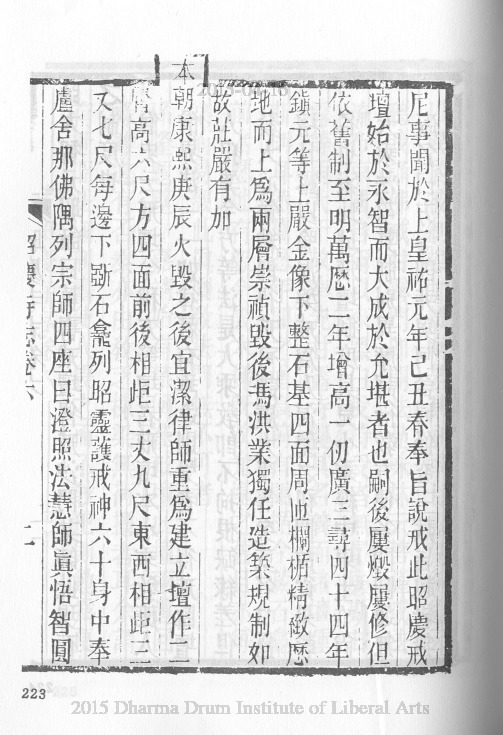 尼事聞於上皇祐元年己丑春奉旨說戒此昭慶戒
壇始於永智而大成於允堪者也嗣後屢燬屢修但
依舊制至明萬曆二年增高一仞廣三尋四十四年
鎮元等上嚴金像下整石基四面周匝欄楯精緻歷
地而上為兩層崇禎毀後馮洪業獨任造築規制如
故莊嚴有加
本朝康熙庚辰火毀之後宜潔律師重為建立壇作二
層高六尺方四面前後相距三丈九尺東西相距三
丈七尺每邊下斵石龕列昭靈護戒神六十身中奉
盧舍那佛隅列宗師四座曰澄照法慧師真悟智圓
昭慶寺志卷六
223
2015 Dharma Drum Institute of Liberal Arts